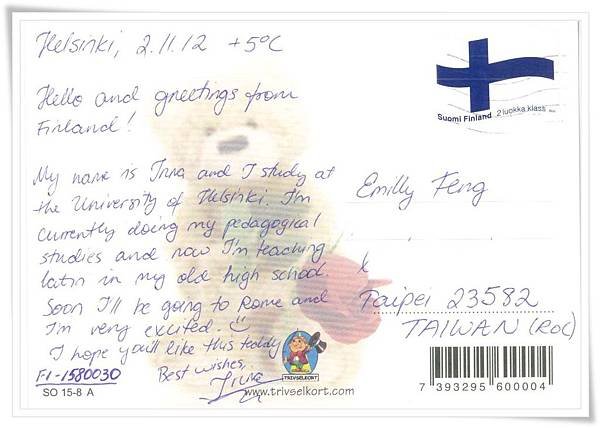 Helsinki, 2.11.12 +5°C
Hello and greetings from
Finland!
My name is Inna and I study at
the University of Helsinki. I'm
currently doing my pedagogical
studies and now I'm teaching
latin in my old high school.
Soon I'll be going to Rome and
I'm very excited. ☺
I hope you'll like this teddy
Best wishes,
FI-1580030
SO 15-8 A
Suomi Finland 2 luokka klass
Emilly Feng
Taipei 23582
TAIWAN (ROC)
TRIVSELKORT
www.trivselkort.com
7 393295 600004